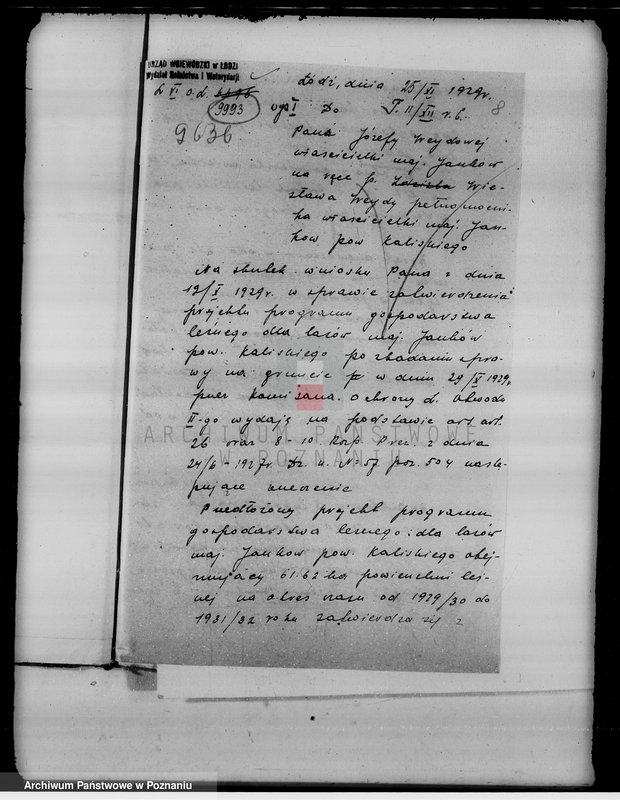 URZĄD WOJEWÓDZKI w ŁODZI
Wydział Rolnictwa i Weterynarji
Łódź, dnia 25/XI 1929 r.
8
L. VI O.L.
9993
Do
T. 11/XII r.b.
9636
Pani Józefy Weydowej
właścicielki maj. Janków
na ręce p. Wie-
sława Weydy pełnomocni-
ka właścicielki maj. Jan-
ków pow. Kaliskiego
Na skutek wniosku Pana z dnia
12/X 1929 r. w sprawie zatwierdzenia
projektu programu gospodarstwa
leśnego dla lasów maj. Janków
pow. Kaliskiego po zbadaniu spra-
wy na gruncie w dniu 29/X 1929 r.
przez Komisarza Ochrony L. Obwodu
II-go wydaję na podstawie art. art.
26 oraz 8-10 Rozp. Prez. z dnia
24/6-1927 r. Dz. U. № 57 poz. 504 nastę-
pujące orzeczenie
Przedłożony projekt programu
gospodarstwa leśnego dla lasów
maj. Janków pow. Kaliskiego obej-
mujący 61.62 ha powierzchni leś-
nej na okres czasu od 1929/30 do
1931/32 roku zatwierdza się z
ARCHIWUM PAŃSTWOWE
W POZNANIU
Archiwum Państwowe w Poznaniu